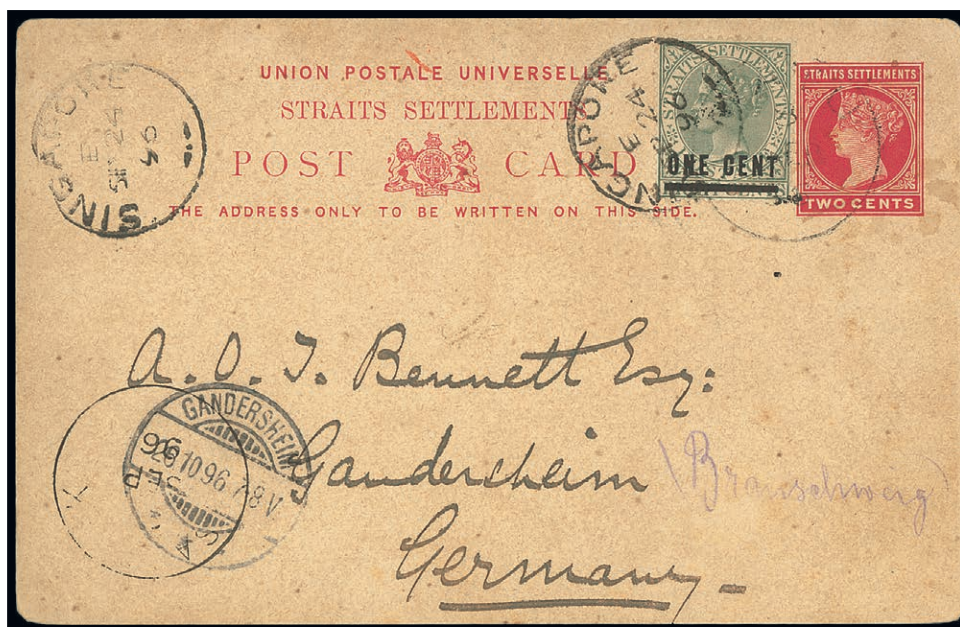 UNION POSTALE UNIVERSELLE
STRAITS SETTLEMENTS
POST CARD
THE ADDRESS ONLY TO BE WRITTEN ON THIS SIDE.
SINGAPORE
SINGAPORE
STRAITS SETTLEMENTS
ONE CENT
STRAITS SETTLEMENTS
TWO CENTS
A. O. J. Bennett Esq:
Gandersheim
(Braunschweig)
Germany
GANDERSHEIM
28 10 96 7-8 V